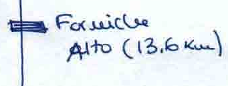 Forniche
Alto (13.6 Km)